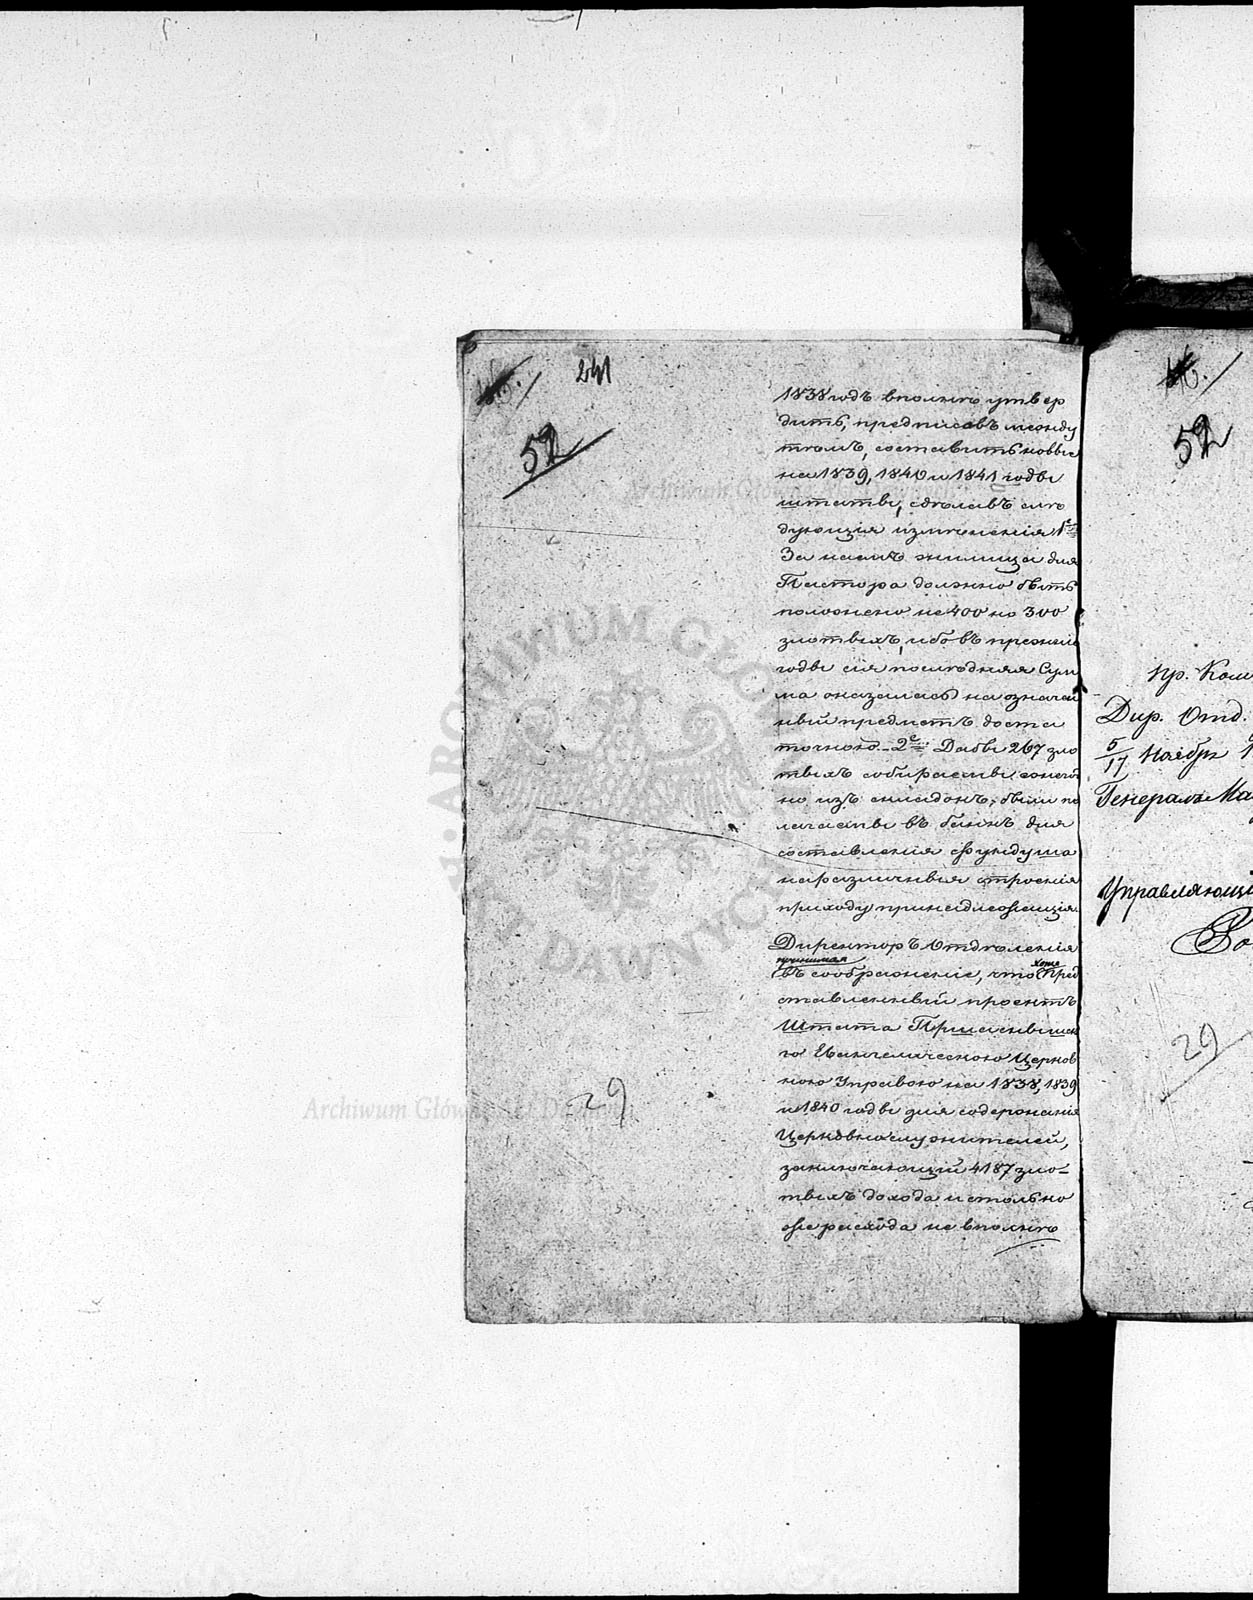 241
52
1838 годъ вполнѣ утвер
дить, предписавъ между
тѣмъ, составить новые
на 1839, 1840 и 1841 годы
штаты, сдѣлавъ слѣ
дующія измѣненія 1е
За наемъ жилища для
Пастора должно быть
положено не 400 но 300
злотыхъ, ибо въ прежніе
годы сія послѣдняя Сум
ма оказалась на означен
ный предметъ доста
точною. 2е Дабы 267 зло
тыхъ собираемые ежегод
но изъ складокъ, были по
лагаемы въ банкъ для
составленія фундуша
на различныя строенія
приходу принадлежащія
Директоръ Отдѣленія
принимая
въ соображеніе, что хотя пред
ставленный проектъ
Штата Пришенвальдско
го Евангелическою Церков
ною Управою на 1838, 1839
и 1840 годы для содержанія
Церковнослужителей,
заключающій 4187 зло-
тыхъ дохода и столько
же расхода не вполнѣ
29
52
пр. Ком
Дир. Отд.
5/17 Ноября 1
Генералъ Ма
Управляющі
29
Archiwum Główne Akt Dawnych
ARCHIWUM GŁÓWNE AKT DAWNYCH